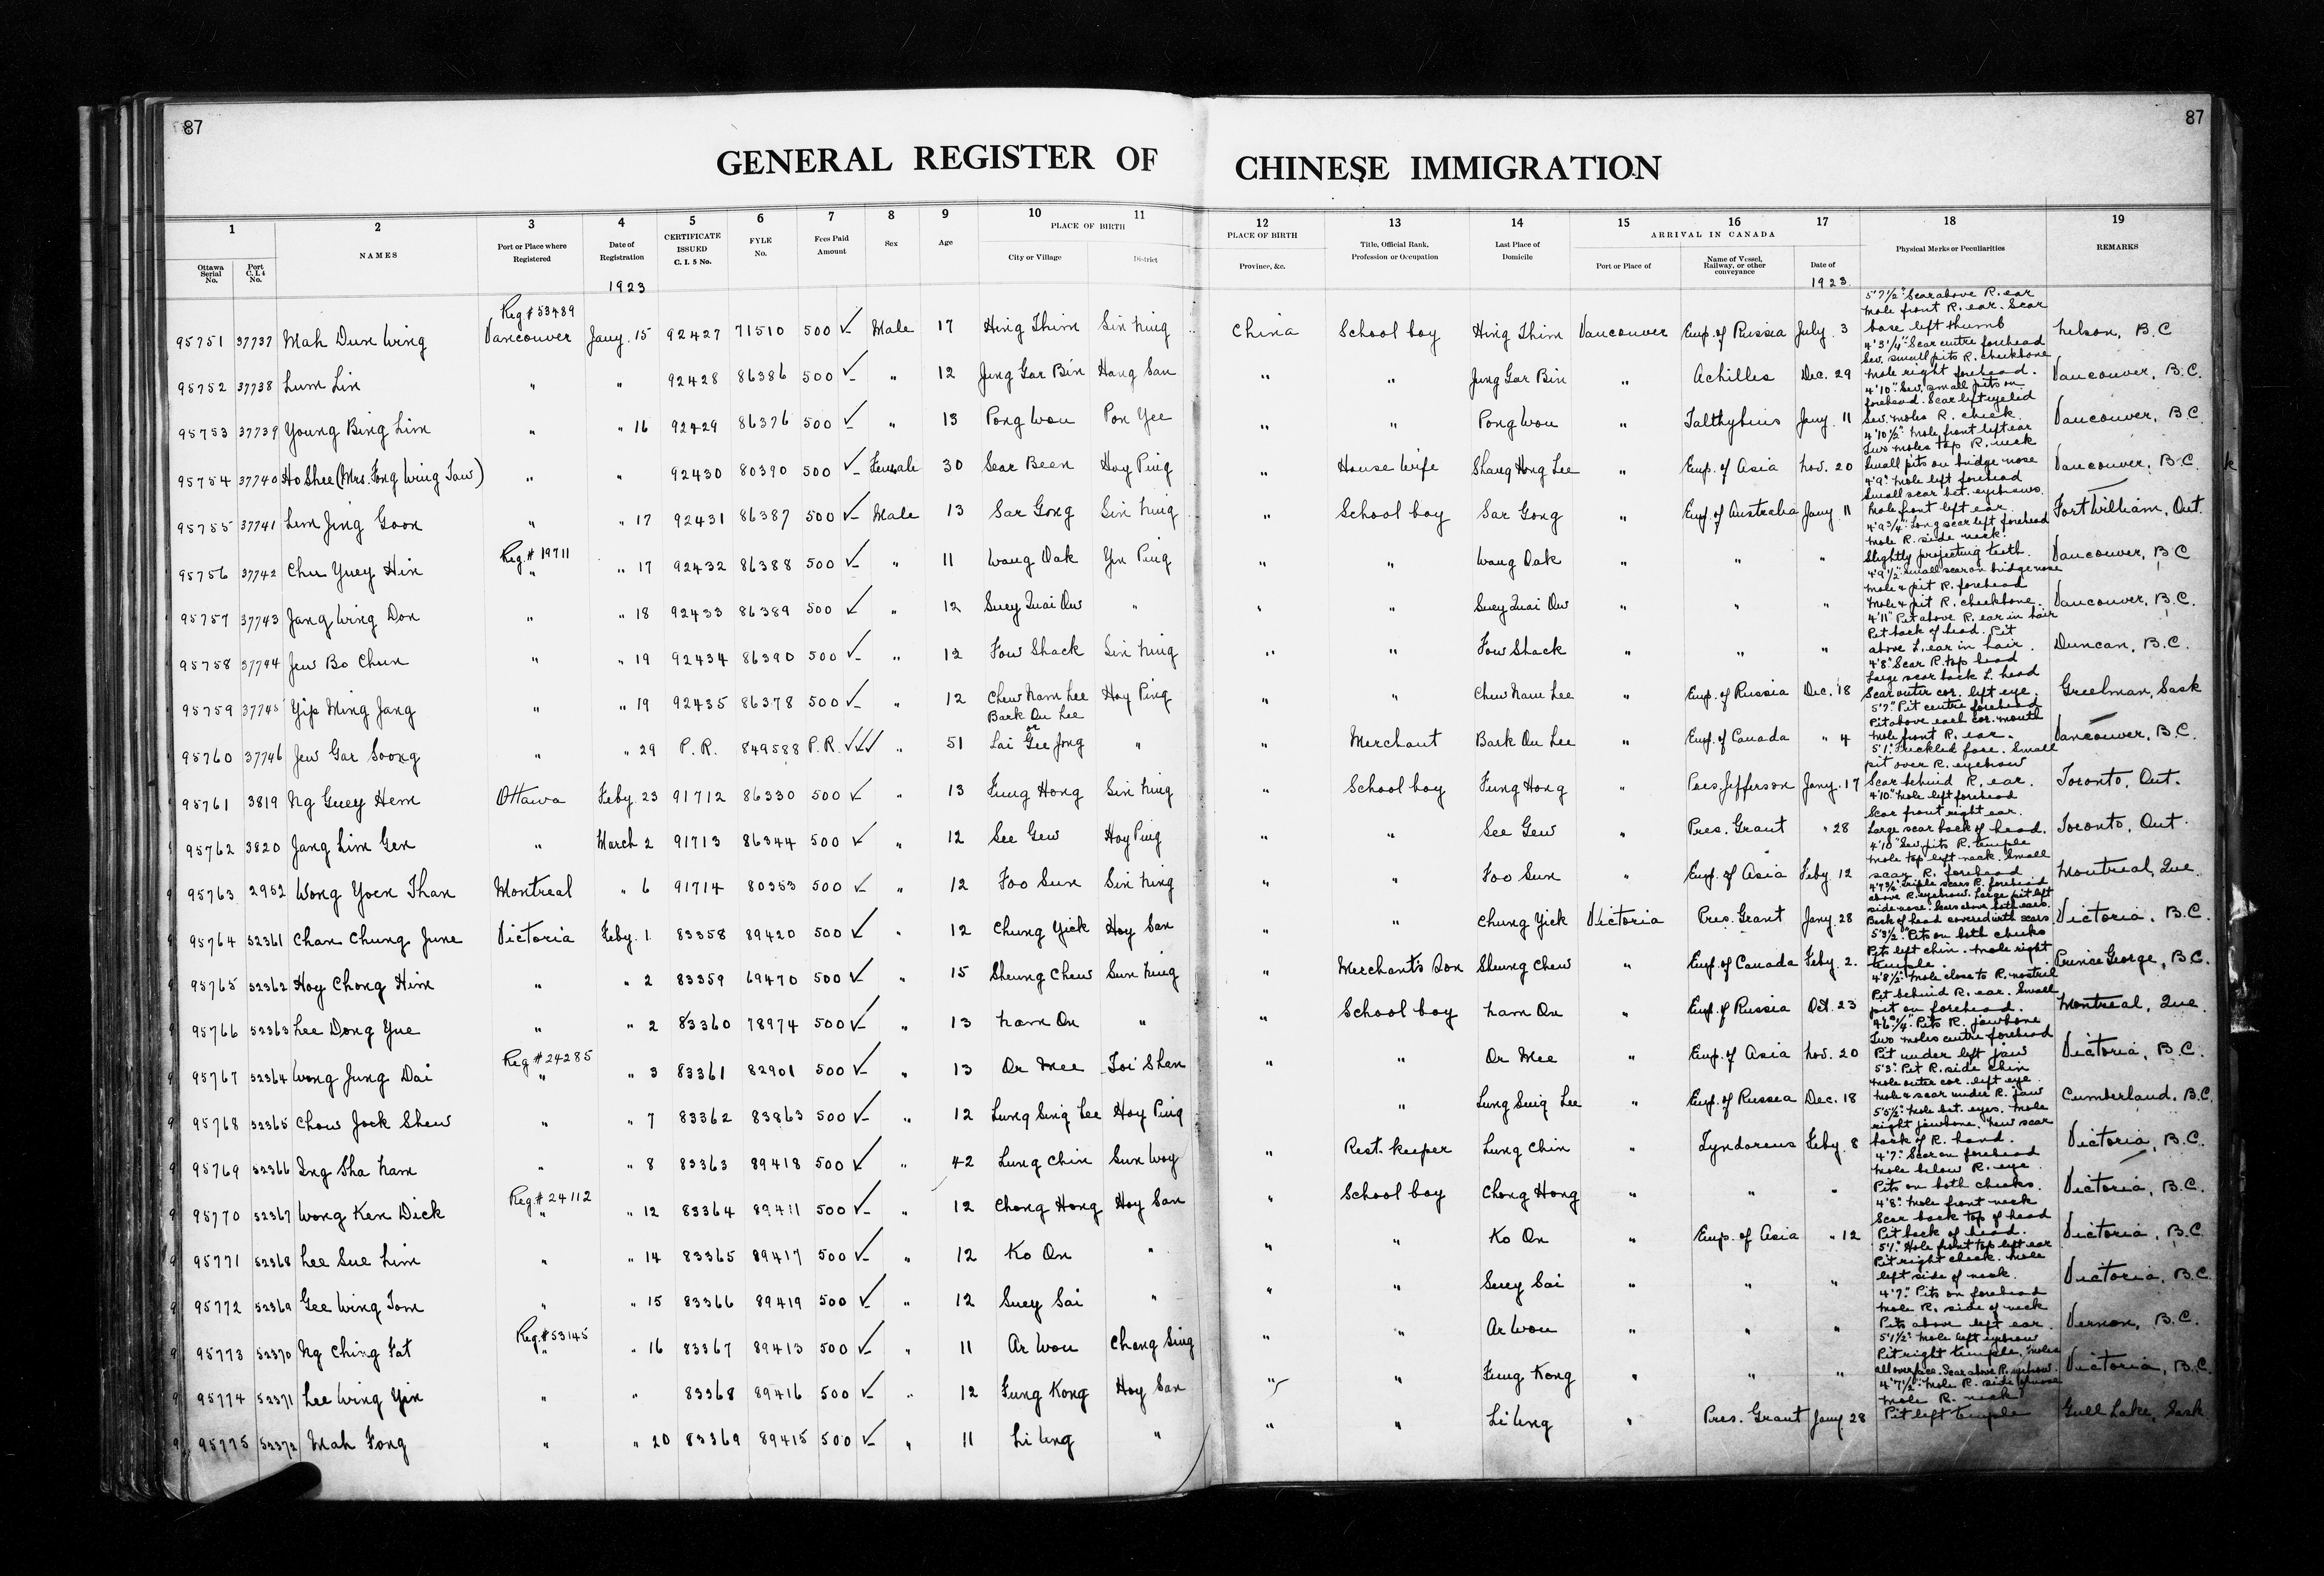 87
87
GENERAL REGISTER OF CHINESE IMMIGRATION
1 2 3 4 5 6 7 8 9 10 11 12 13 14 15 16 17 18 19
Ottawa Serial No. Port C.I.4 No. NAMES Port or Place where Registered Date of Registration CERTIFICATE ISSUED C. I. 5 No. FYLE No. Fees Paid Amount Sex Age PLACE OF BIRTH City or Village District PLACE OF BIRTH Province, &c. Title, Official Rank, Profession or Occupation Last Place of Domicile ARRIVAL IN CANADA Port or Place of Name of Vessel, Railway, or other conveyance Date of Physical Marks or Peculiarities REMARKS
1923 1923
Reg # 53489
95751 37737 Mah Dun Wing Vancouver Jany. 15 92427 71510 500 ✓ Male 17 Hing Thim Sin Ning China School boy Hing Thim Vancouver Emp. of Russia July. 3 5'7½" Scar above R. ear mole front R. ear. Scar base left thumb Nelson, B.C
95752 37738 Lum Lin " " 92428 86386 500 ✓ " 12 Jung Gar Bin Hang San " " Jung Gar Bin " Achilles Dec. 29 4'3¼" Scar centre forehead Sev. small pits R. cheekbone mole right forehead. Vancouver, B.C.
95753 37739 Young Bing Lim " " 16 92429 86376 500 ✓ " 13 Pong Wou Pon Yee " " Pong Wou " Talthybius Jany. 11 4'10" Sev. small pits on forehead. Scar left eyelid Sev. moles R. cheek. Vancouver, B.C.
95754 37740 Ho Shee (Mrs. Fong Wing Taw) " " 92430 80390 500 ✓ Female 30 Sear Been Hoy Ping " House Wife Shang Hong Lee " Emp. of Asia Nov. 20 4'10½" Mole front left ear Two moles top R. neck Small pits on bridge nose Vancouver, B.C.
95755 37741 Lim Jing Goon " " 17 92431 86387 500 ✓ Male 13 Sar Gong Sin Ning " School boy Sar Gong " Emp. of Australia Jany. 11 4'9" Mole left forehead Small scar bet. eyebrows. Mole front left ear. Fort William, Ont.
Reg. # 19711
95756 37742 Chu Yuey Hin " " 17 92432 86388 500 ✓ " 11 Wang Oak Yin Ping " " Wang Oak " " " 4'9¾" Long scar left forehead Mole R. side neck. Slightly projecting teeth. Vancouver, B.C
95757 37743 Jang Wing Don " " 18 92433 86389 500 ✓ " 12 Suey Quai Ow " " " Suey Quai Ow " " " 4'9½" Small scar on bridge nose mole & pit R. forehead mole & pit R. cheekbone. Vancouver, B.C.
95758 37744 Jew Bo Chun " " 19 92434 86390 500 ✓ " 12 Fow Shack Sin Ning " " Fow Shack " " " 4'11" Pit above R. ear in hair Pit back of head. Pit above L. ear in hair. Duncan, B.C.
95759 37745 Yip Ming Jang " " 19 92435 86378 500 ✓ " 12 Chew Nam Lee Hoy Ping " " Chew Nam Lee " Emp. of Russia Dec. 18 4'8" Scar R. top head Large scar back L. head Scar outer cor. left eye. Greelman, Sask
Bark On Lee or
95760 37746 Jew Gar Soong " " 29 P.R. 849588 P.R. ✓✓✓ " 51 Lai Gee Jong " " Merchant Bark On Lee " Emp. of Canada " 4 5'7" Pit centre forehead Pit above each cor. mouth Mole front R. ear. Vancouver, B.C.
95761 3819 Ng Guey Hem Ottawa Feby. 23 91712 86330 500 ✓ " 13 Fung Hong Sin Ning " School boy Fung Hong " Pres. Jefferson Jany. 17 5'1" Freckled face. Small pit over R. eyebrow Scar behind R. ear. Toronto, Ont.
95762 3820 Jang Lim Gen " March 2 91713 86344 500 ✓ " 12 See Gew Hoy Ping " " See Gew " Pres. Grant " 28 4'10" Mole left forehead Scar front right ear. Large scar back of head. Toronto, Ont.
95763 2952 Wong Yoen Than Montreal " 6 91714 80353 500 ✓ " 12 Foo Sun Sin Ning " " Foo Sun " Emp. of Asia Feby. 12 4'10" Sev. pits R. temple mole top left neck. Small scar R. forehead Montreal, Que.
95764 52361 Chan Chung June Victoria Feby. 1 83358 89420 500 ✓ " 12 Chung Yick Hoy San " " Chung Yick Victoria Pres. Grant Jany. 28 4'7¾" Triple scars R. forehead above R. eyebrow. Large pit left side nose. Scars above both ears. Back of head covered with scars Victoria, B.C.
95765 52362 Hoy Chong Him " " 2 83359 69470 500 ✓ " 15 Sheung Chew Sun Ning " Merchant's Son Sheung Chew " Emp. of Canada Feby. 2. 5'3½" Pits on both cheeks Pits left chin. Mole right temple. Prince George, B.C.
95766 52363 Lee Dong Yue " " 2 83360 78974 500 ✓ " 13 Nam On " " School boy Nam On " Emp. of Russia Oct. 23 4'8½" Mole close to R. nostril Pit behind R. ear. Small pit on forehead. Montreal, Que
Reg # 24285
95767 52364 Wong Jung Dai " " 3 83361 82901 500 ✓ " 13 Or Mee Toi Shan " Or Mee " Emp. of Asia Nov. 20 4'6¼" Pits R. jawbone Two moles centre forehead Pit under left jaw Victoria, B.C.
95768 52365 Chow Jock Shew " " 7 83362 83863 500 ✓ " 12 Lung Sing Lee Hoy Ping " Lung Sing Lee " Emp. of Russia Dec. 18 5'3" Pit R. side chin Mole outer cor. left eye. Mole & scar under R. jaw Cumberland, B.C.
95769 52366 Ing Sha Nam " " 8 83363 89418 500 ✓ " 42 Lung Chin Sun Woy " Rest. Keeper Lung Chin " Tyndareus Feby. 8 5'5½" Mole bet. eyes. Mole right jawbone. New scar back of R. hand. Victoria, B.C.
Reg. # 24112
95770 52367 Wong Ken Dick " " 12 83364 89411 500 ✓ " 12 Chong Hong Hoy San " School boy Chong Hong " " " 4'7" Scar on forehead Mole below R. eye. Pits on both cheeks. Victoria, B.C.
95771 52368 Lee Sue Lim " " 14 83365 89417 500 ✓ " 12 Ko On " " " Ko On " Emp. of Asia " 12 4'8" Mole front neck Scar back top of head Pit back of head. Victoria, B.C
95772 52369 Gee Wing Tom " " 15 83366 89419 500 ✓ " 12 Suey Sai " " " Suey Sai " " " 5'1" Hole front top left ear Pit right cheek. Mole left side of neck. Victoria, B.C.
Reg. # 53145
95773 52370 Ng Ching Fat " " 16 83367 89413 500 ✓ " 11 Ar Wou Chang Sing " " Ar Wou " " " 4'7" Pits on forehead Mole R. side of neck Pits above left ear. Vernon, B.C.
95774 52371 Lee Wing Yin " " 83368 89416 500 ✓ " 12 Fung Kong Hoy San " " Fung Kong " " " 5'1½" Mole left eyebrow Pit right temple. Moles all over face. Scar above R. eyebrow. Victoria, B.C.
95775 52372 Mah Fong " " 20 83369 89415 500 ✓ " 11 Li Ung " " " Li Ung " Pres. Grant Jany. 28 4'7½" Mole R. side of nose Mole R. neck Pit left temple Gull Lake, Sask